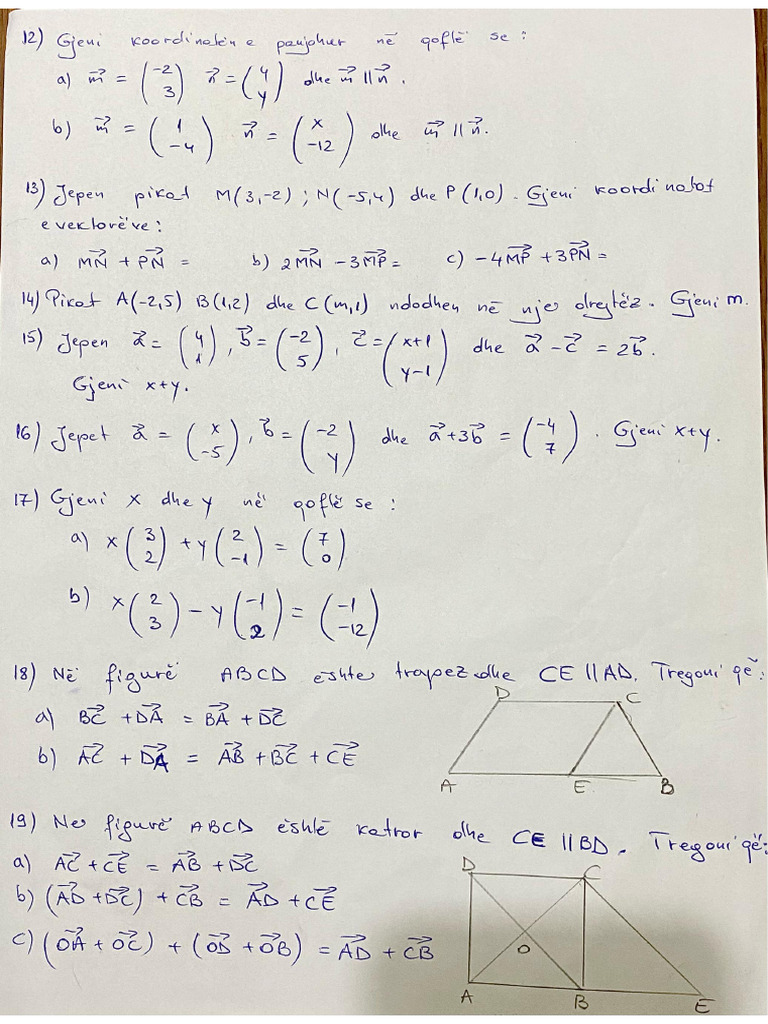 12) Gjeni koordinatën e panjohur në qoftë se :
a) m⃗ = (-2 3) n⃗ = (4 y) dhe m⃗ || n⃗ .
b) m⃗ = (1 -4) n⃗ = (x -12) dhe m⃗ || n⃗.
13) Jepen pikat M(3,-2) ; N(-5,4) dhe P(1,0) . Gjeni koordinatat
e vektorëve :
a) MN⃗ + PN⃗ = b) 2MN⃗ - 3MP⃗ = c) -4MP⃗ + 3PN⃗ =
14) Pikat A(-2,5) B(1,2) dhe C(m,1) ndodhen në një drejtëz . Gjeni m.
15) Jepen a⃗ = (4 1) , b⃗ = (-2 5) , c⃗ = (x+1 y-1) dhe a⃗ - c⃗ = 2b⃗ .
Gjeni x+y.
16) Jepet a⃗ = (x -5) , b⃗ = (-2 y) dhe a⃗ + 3b⃗ = (-4 7) . Gjeni x+y.
17) Gjeni x dhe y në qoftë se :
a) x(3 2) + y(2 -1) = (7 0)
b) x(2 3) - y(-1 2) = (-1 -12)
18) Në figurë ABCD është trapez dhe CE || AD. Tregoni që :
a) BC⃗ + DA⃗ = BA⃗ + DC⃗
b) AC⃗ + DA⃗ = AB⃗ + BC⃗ + CE⃗
D C
A E B
19) Ne figurë ABCD është katror dhe CE || BD . Tregoni që :
a) AC⃗ + CE⃗ = AB⃗ + DC⃗
b) (AD⃗ + DC⃗) + CB⃗ = AD⃗ + CE⃗
c) (OA⃗ + OC⃗) + (OD⃗ + OB⃗) = AD⃗ + CB⃗
D C
O
A B E